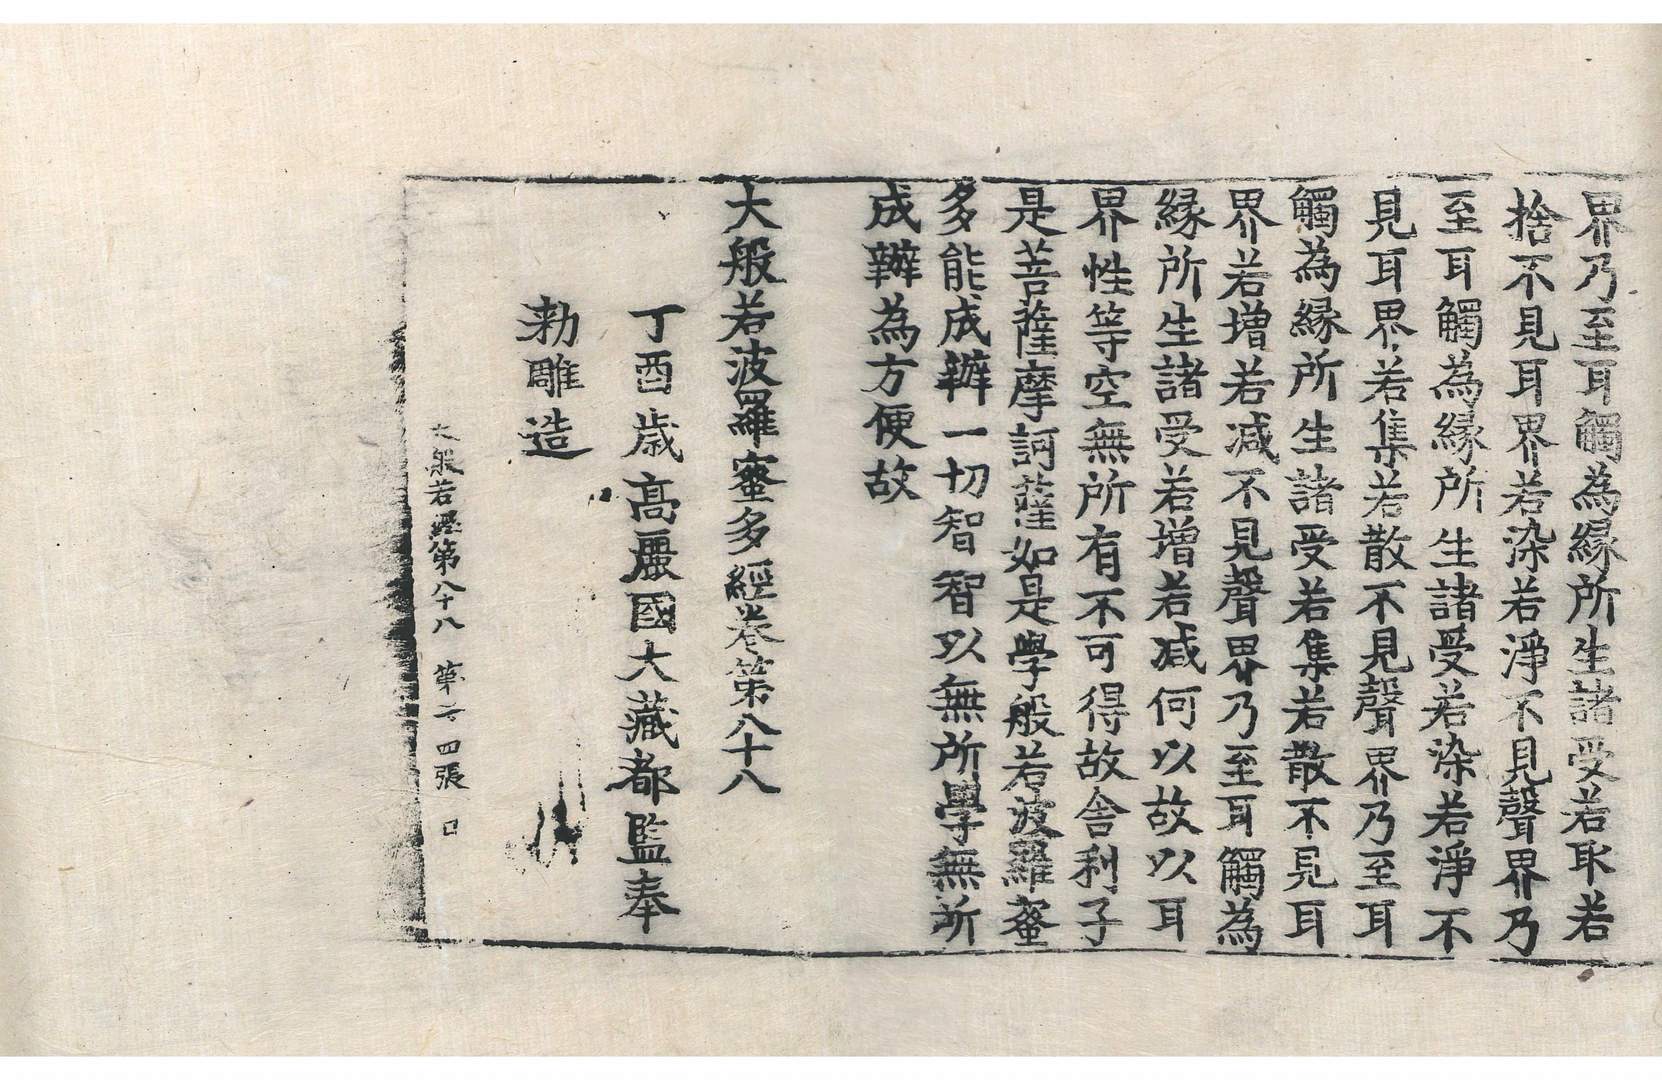 界乃至耳觸為緣所生諸受若取若
捨不見耳界若染若淨不見聲界乃
至耳觸為緣所生諸受若染若淨不
見耳界若集若散不見聲界乃至耳
觸為緣所生諸受若集若散不見耳
界若增若減不見聲界乃至耳觸為
緣所生諸受若增若減何以故以耳
界性等空無所有不可得故舍利子
是菩薩摩訶薩如是學般若波羅蜜
多能成辦一切智智以無所學無所
成辦為方便故
大般若波羅蜜多經卷第八十八
丁酉歲高麗國大藏都監奉
勅雕造
大般若經第八十八 第十四張 日